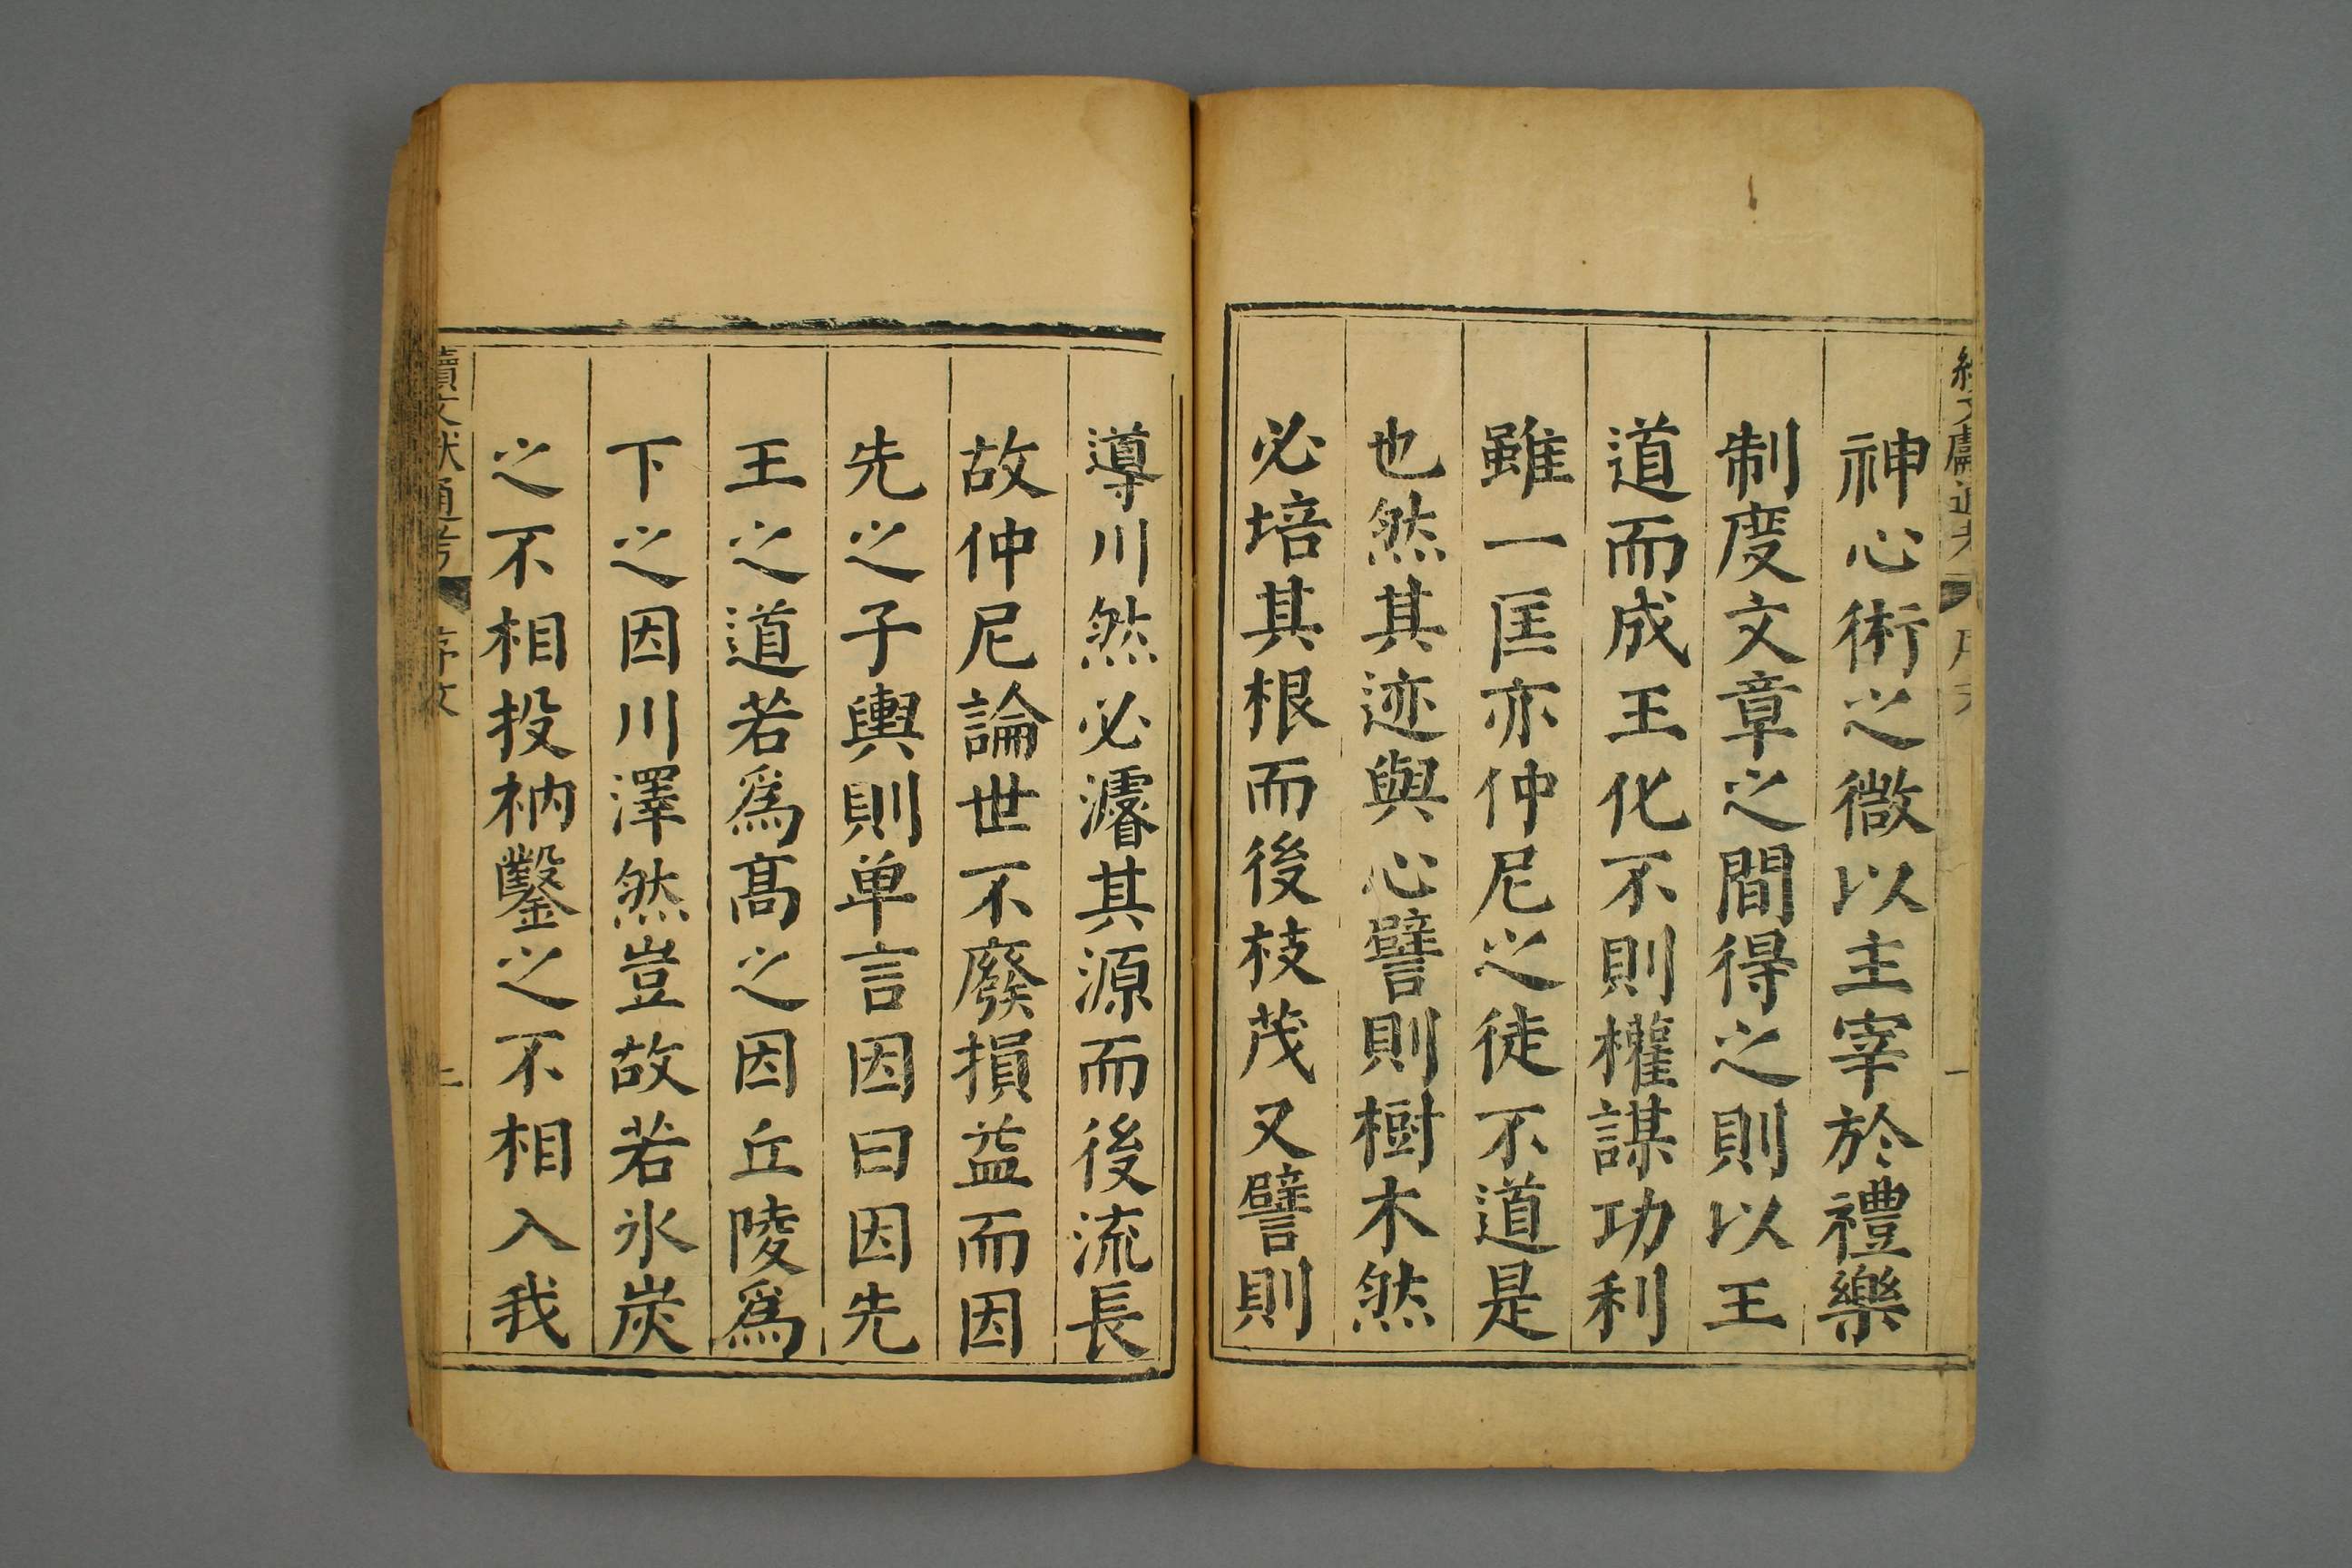 神心術之微以主宰於禮樂
制度文章之間得之則以王
道而成王化不則權謀功利
雖一匡亦仲尼之徒不道是
也然其迹與心譬則樹木然
必培其根而後枝茂又譬則
導川然必濬其源而後流長
故仲尼論世不廢損益而因
先之子輿則单言因曰因先
王之道若爲髙之因丘陵爲
下之因川澤然豈故若氷炭
之不相投枘鑿之不相入我
續文献通考 序文